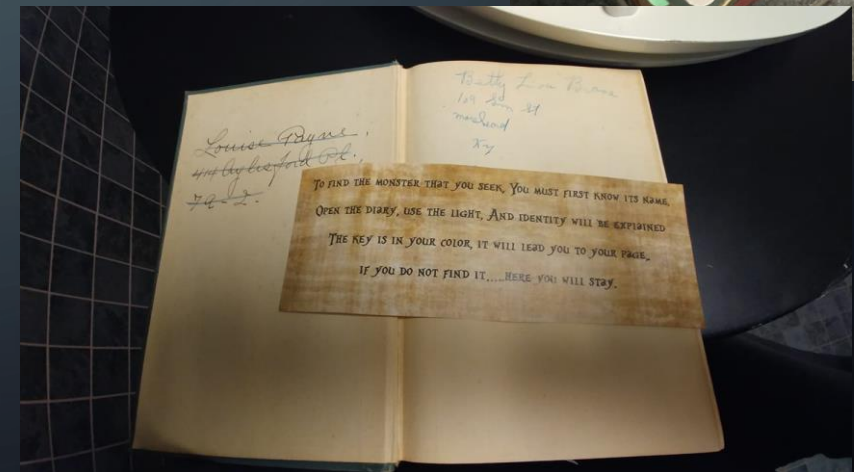 Louise Payne.
Betty Lou
St
Ky
To find the monster that you seek, You must first know its name,
Open the diary, use the light, And identity will be explained
The key is in your color, it will lead you to your page,
If you do not find it.....here you will stay.